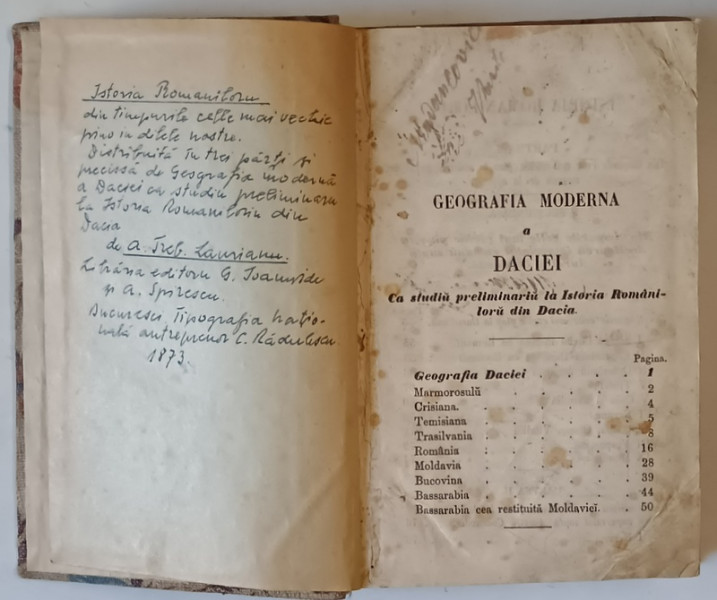 Istoria Romanilorŭ
din timpurile celle mai vechie
pino in dilele nostre.
Distribuită in trei părți și
precissă de Geografia modernă
a Daciei ca studiu preliminaru
la Istoria Romanilorŭ din
Dacia
de A. Treb. Laurianu.
Librăria editoru G. Ioannide
și A. Spirescu.
Bucuresci. Tipografia națio-
nală antreprenor C. Rădulescu
1873.
GEOGRAFIA MODERNA
a
DACIEI
Ca studiŭ preliminariŭ la Istoria Români-
lorŭ din Dacia.
Pagina.
Geografia Daciei . . . . 1
Marmorosulŭ . . . . . 2
Crisiana. . . . . . 4
Temisiana . . . . . 5
Trasilvania . . . . . 8
România . . . . . 16
Moldavia . . . . . 28
Bucovina . . . . . 39
Bassarabia . . . . . 44
Bassarabia cea restituită Moldaviei. . 50